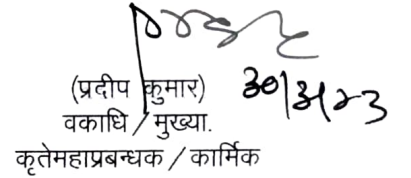 (प्रदीप कुमार)
वकाधि / मुख्या.
कृतेमहाप्रबन्धक / कार्मिक